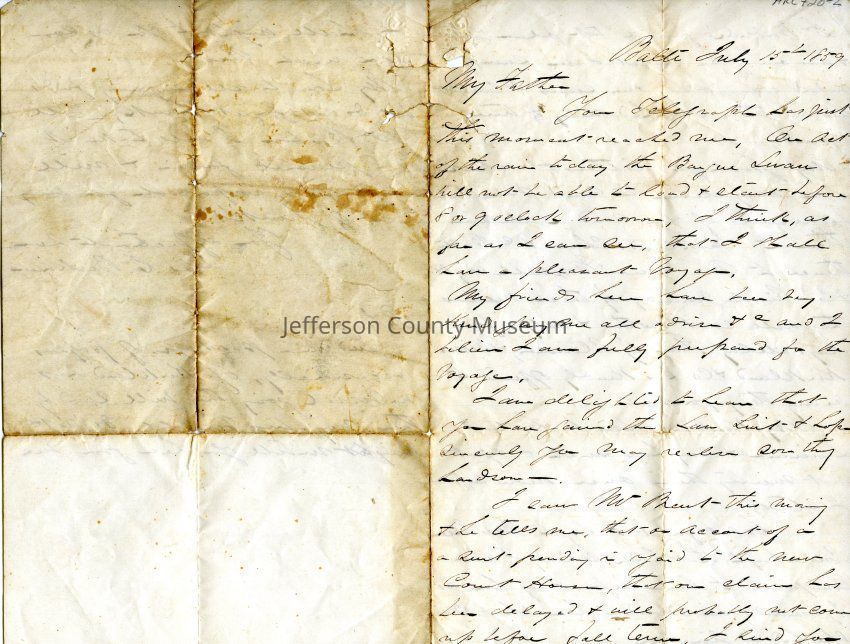 ARC720-2
Balto July 15th 1859
My Father
Your Telegraph has just
this moment reached me, On act
of the rain today the Barque Swan
will not be able to load & start before
8 or 9 oclock tomorrow, I think, as
far as I can see, that I shall
have a pleasant Voyage.
My friends here have been very
kind, all advise &c and I
believe I am fully prepared for the
Voyage.
I am delighted to hear that
you have gained the Law Suit & hope
sincerely you may realise something
handsome.
I saw Mr Brent this morning
& he tells me, that on account of a
a suit pending in regard to the new
Court House, that our claim has
been delayed & will probably not come
up before fall term, I send you
Jefferson County Museum